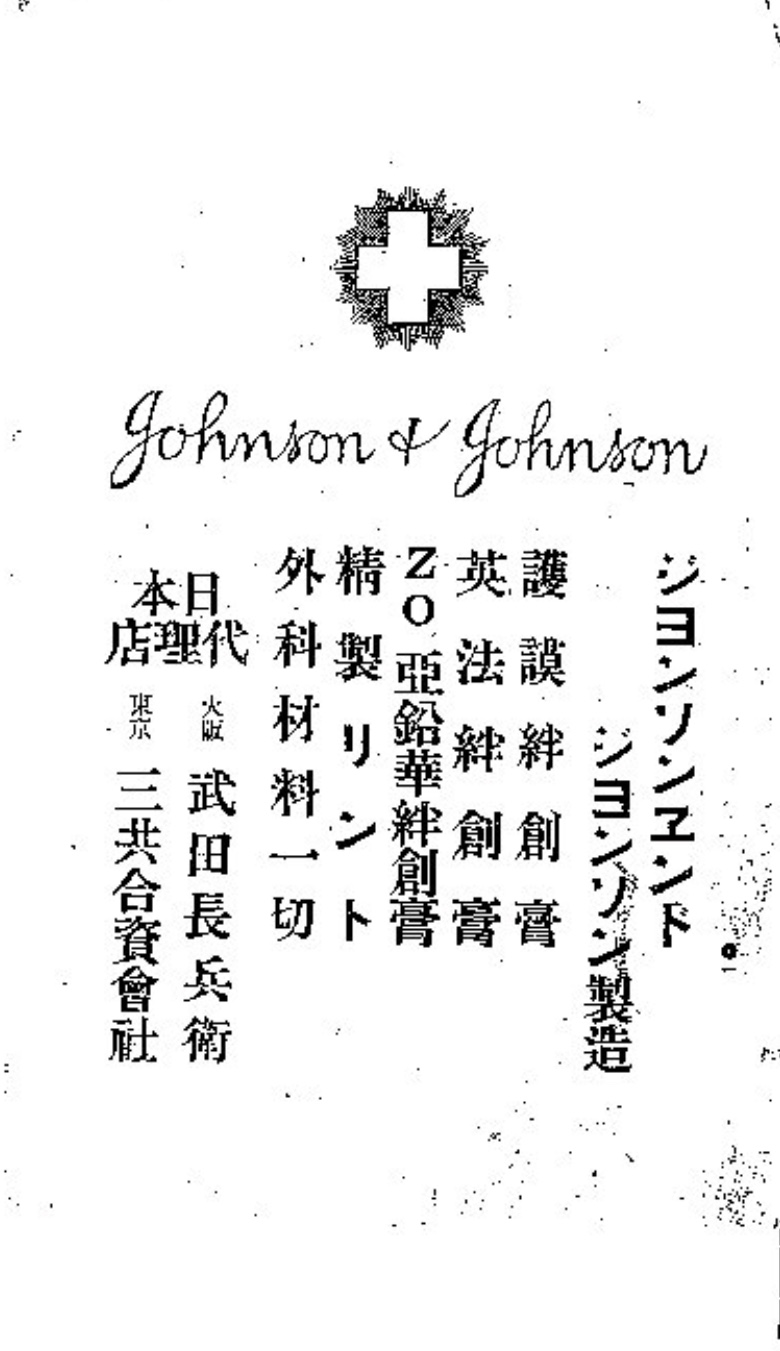 Johnson & Johnson
ジヨンソンヱンド
ジヨンソン製造
護謨絆創膏
英法絆創膏
ZO亞鉛華絆創膏
精製リント
外科材料一切
日本
代理店
大阪 武田長兵衛
東京 三共合資會社